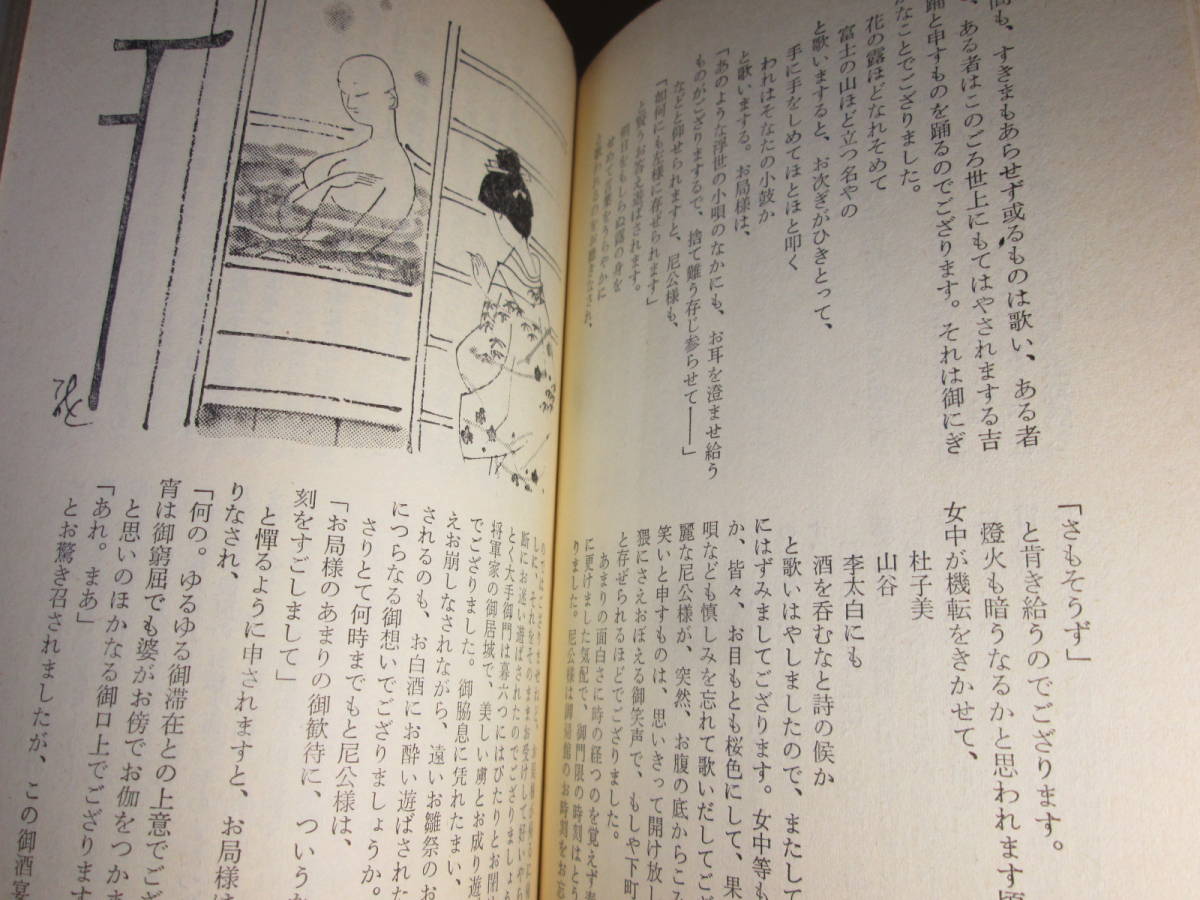 間も、すきまもあらせず或るものは歌い、ある者
、ある者はこのごろ世上にもてはやされまする吉
踊と申すものを踊るのでござります。それは御にぎ
かなことでござりました。
花の露ほどなれそめて
富士の山ほど立つ名やの
と歌いますると、お次ぎがひきとって、
手に手をしめてほとほと叩く
われはそなたの小鼓か
と歌いまする。お局様は、
「あのような浮世の小唄のなかにも、お耳を澄ませ給う
ものがござりまするで、捨て難う存じ参らせて——」
などと仰せられますと、尼公様も、
「如何にも左様に存ぜられます」
と競うお答え遊ばされます。
明日をもしらぬ露の身を
せめて言葉をうらやかに
「さもそうず」
と肯き給うのでござります。
燈火も暗うなるかと思われます頃
女中が機転をきかせて、
杜子美
山谷
李太白にも
酒を呑むなと詩の候か
と歌いはやしましたので、またして
にはずみましてござります。女中等も
か、皆々、お目もとも桜色にして、果
唄なども慎しみを忘れて歌いだしてござ
麗な尼公様が、突然、お腹の底からこみ
笑いと申すものは、思いきって開け放し
猥にさえおぼえる御笑声で、もしや下町
と存ぜられるほどでござりました。
あまりの面白さに時の経つのを覚えず
に更けました気配で、御門限の時刻はとう
りました。尼公様は御帰館のお時刻をお忘
しに、それをそのままお受けして好いやら
断にお迷い遊ばされたのでござりましょう
とく大手御門は暮六つにはぴたりとお閉
将軍家の御居城で、美しい虜とお成り遊
でござりました。御脇息に凭れたまい、
えお崩しなされながら、遠いお雛祭のお
されるのも、お白酒にお酔い遊ばされた
につらなる御想いでござりましょうか。
さりとて何時までもと尼公様は、
「お局様のあまりの御歓待に、ついうか
刻をすごしまして」
と憚るように申されますと、お局様は
りなされ、
「何の。ゆるゆる御滞在との上意でござ
宵は御窮屈でも婆がお傍でお伽をつかま
と思いのほかなる御口上でござります
「あれ。まあ」
とお驚き召されましたが、この御酒宴